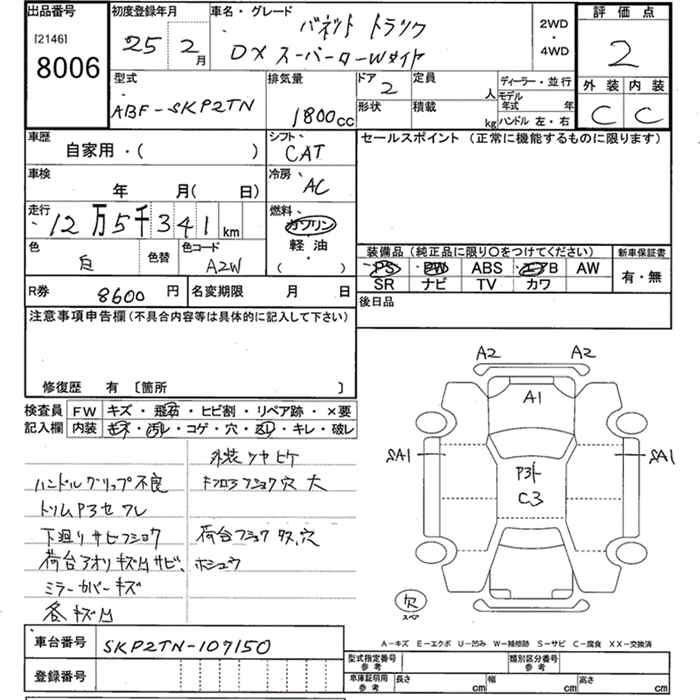 出品番号 初度登録年月 車名・グレード 評価点
[2146] 8006 25 2月 バネット トラック 2WD・4WD 2
DX スーパーローWタイヤ
型式 排気量 ドア 2 定員 人 ディーラー・並行 外装 内装
ABF-SKP2TN 1800cc 形状 積載 kg モデル年式 年 ハンドル 左・右 C C
車歴 シフト セールスポイント (正常に機能するものに限ります)
自家用・( ) CAT
車検 冷房
年 月( 日) AC
走行 燃料
12万5千341km ガソリン
軽油
・
( )
色 色替 色コード 装備品 (純正品に限り○をつけてください) 新車保証書
白 A2W PS PW ABS エアB AW 有・無
SR ナビ TV カワ
R券 8600円 名変期限 月 日 後日品
注意事項申告欄 (不具合内容等は具体的に記入して下さい)
修復歴 有 〔箇所 〕
検査員 FW キズ・飛石・ヒビ割・リペア跡・×要
記入欄 内装 キズ・汚レ・コゲ・穴・スレ・キレ・破レ
外装 ツヤヒケ
ハンドルグリップ不良 Fフロアフショク穴大
トリムP3セワレ
下廻リサビフショク 荷台フショク サス、穴
荷台アオリキズ凹サビ、 ホシュウ
ミラーカバーキズ
各キズ凹
A2 A2
A1
SA1 SA1
P3ト
C3
欠
スペア
A-キズ E-エクボ U-凹み W-補修跡 S-サビ C-腐食 XX-交換済
車台番号 SKP2TN-107150
登録番号
型式指定番号 参考 類別区分番号 参考
車庫証明用 参考 長さ cm 幅 cm 高さ cm